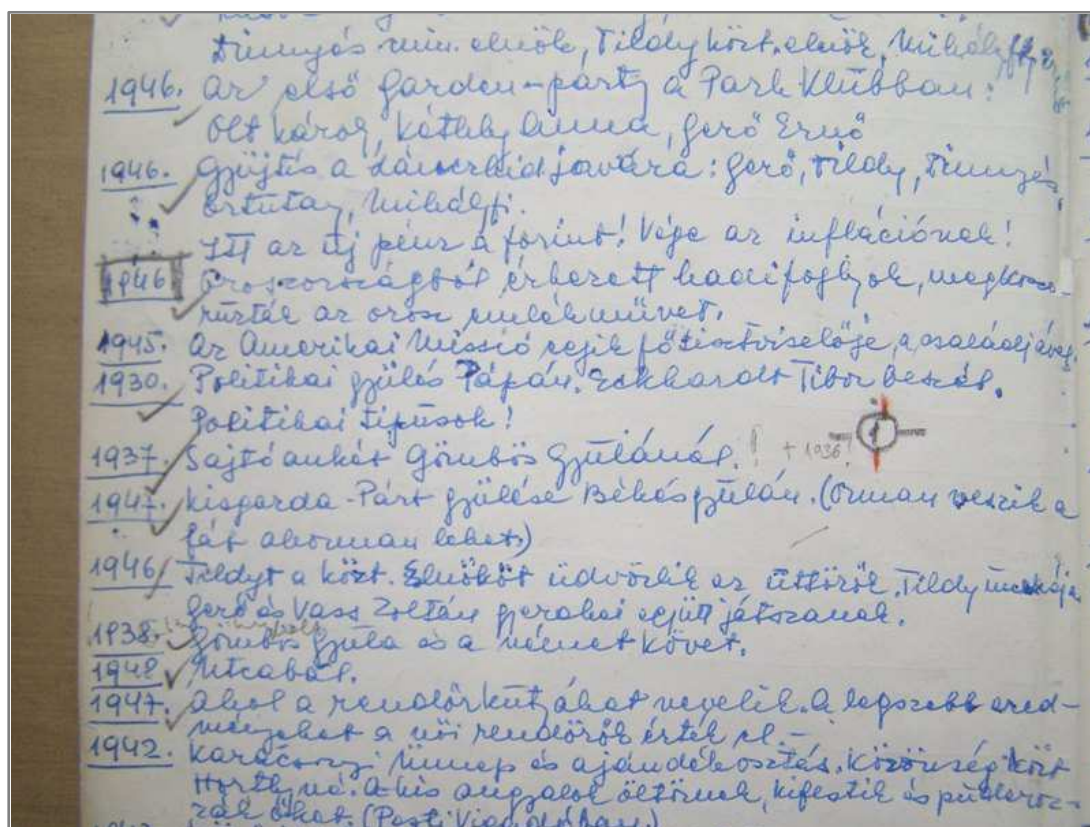 Dinnyés min. elnök, Tildy közt. elnök, Mihályfi
1946. Az első Garden-party a Park Klubban:
Olt Károly, Kéthly Anna, Gerő Ernő
1946. Gyűjtés a Lánchíd javára: Gerő, Tildy, Dinnyés,
Ortutay, Mihályfi.
Itt az új pénz a forint! Vége az inflációnak!
1946 Oroszországból érkezett hadifoglyok, megkoszo-
rúzták az orosz emlékművet.
1945. Az Amerikai Misszió egyik főtisztviselője, a családjával.
1930. Politikai gyűlés Pápán. Eckhardt Tibor beszél.
Politikai típusok!
1937. Sajtóankét Gömbös Gyulánál. ! + 1936!
1947. Kisgazda-Párt gyűlése Békésgyulán. (Onnan veszik a
fát ahonnan lehet)
1946. Tildyt a közt. Elnököt üdvözlik az úttörők. Tildy unokája
Gerő és Vass Zoltán gyerekei együtt játszanak.
1938. Gömbös Gyula és a német követ.
1948. Utcabál.
1947. Ahol a rendőrkutyákat nevelik. A legszebb ered-
ményeket a női rendőrök értek el.-
1942. Karácsonyi Ünnep és ajándékosztás. Közönség közt
Horthyné. A kis angyalok öltöznek, kifestik és púderoz-
zák őket. (Pesti Vigadóban.)